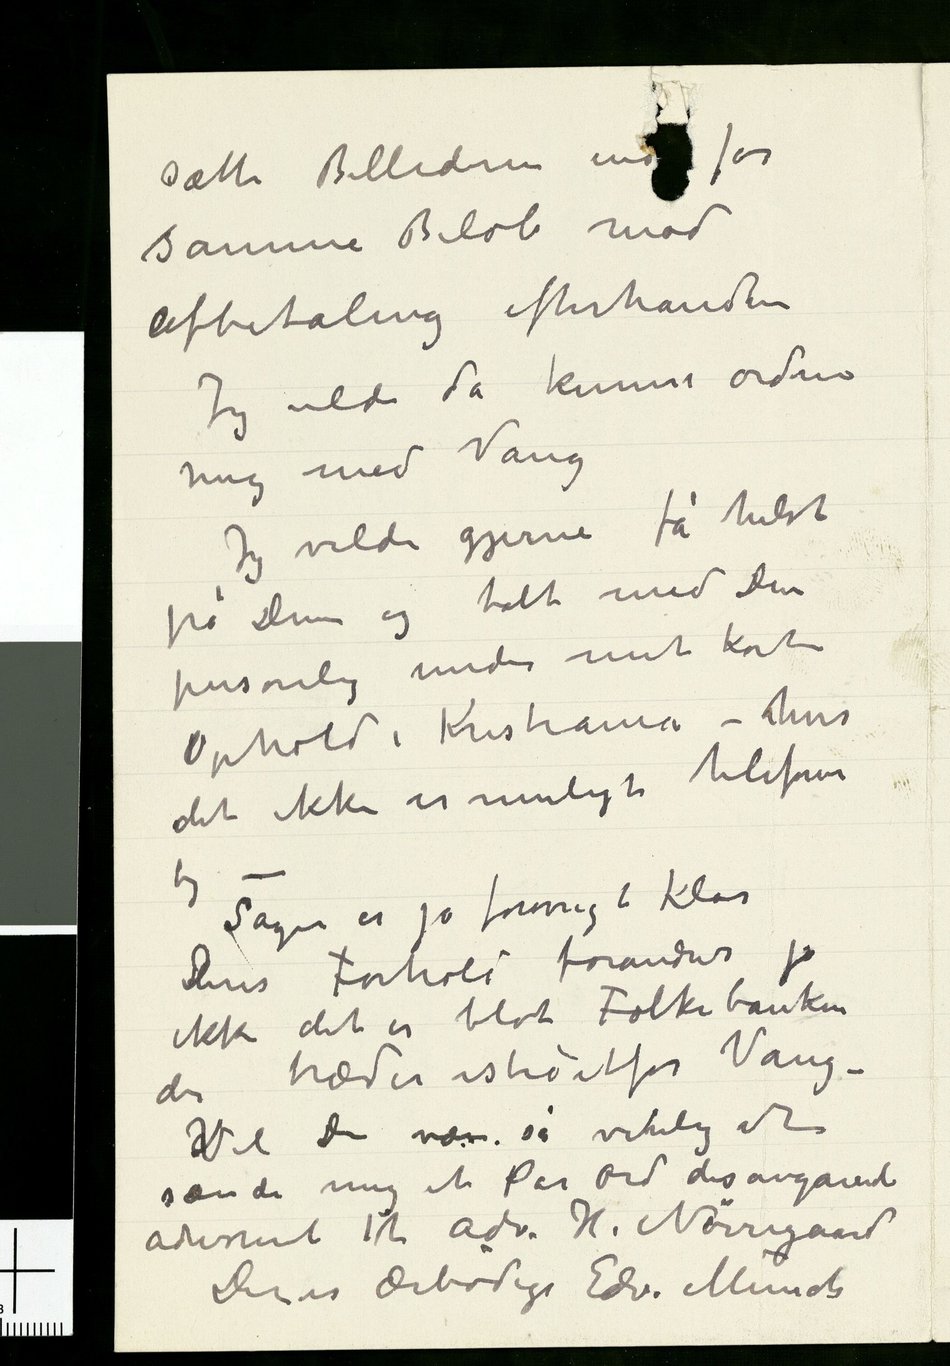 sætte Billederne ind for
samme Beløb mod
afbetaling efterhånden
Jeg vilde da kunne ordne
mig med Vang
Jeg vilde gjerne få hilst
på Dem og talt med Dem
personlig under mit korte
Ophold i Kristiania – hvis
det ikke er muligt telefonere
jeg –
Sagen er jo forøvrigt klar
Deres Forhold forandres jo
ikke det er blot Folkebanken
der træder istedetfor Vang –
Vil De være så venlig at
sænde mig et Par ord desangående
adresseret til adv. H. Nörregaard
Deres ærbødige Edv. Munch